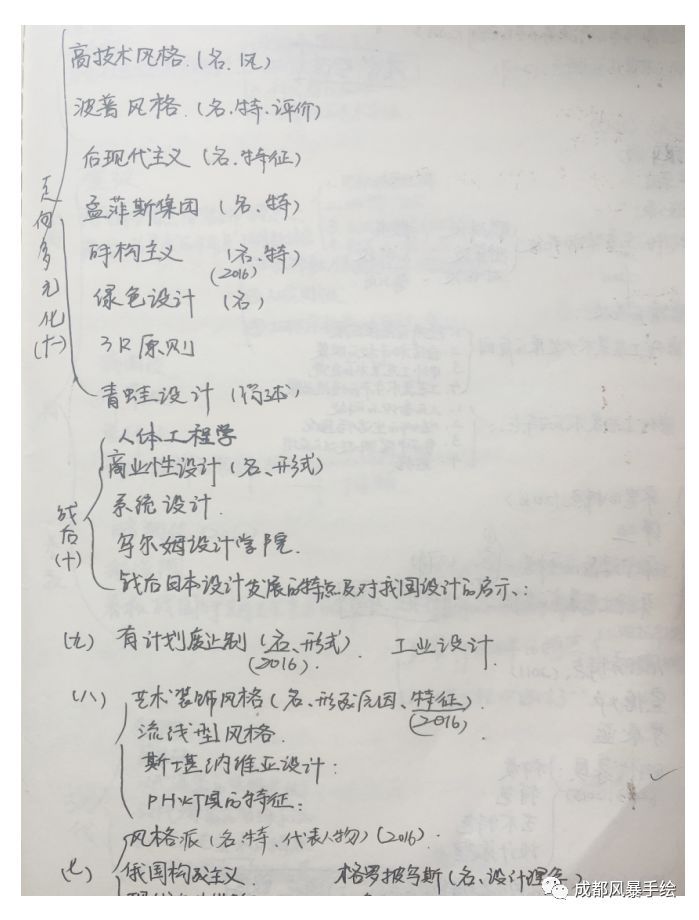 高技术风格.(名.风)
波普风格.(名.特.评价)
后现代主义(名.特征)
孟菲斯集团(名.特)
走向多元化(十一)
解构主义(名.特)
(2016)
绿色设计(名)
3R原则
青蛙设计(简述)
人体工程学
商业性设计(名、形式)
战后(十)
系统设计.
乌尔姆设计学院.
战后日本设计发展的特点及对我国设计的启示.:
(九) 有计划废止制(名、形式). 工业设计.
(2016)
(八) 艺术装饰风格(名、形成原因、特征).
(2016)
流线型风格.
斯堪纳维亚设计:
PH灯具的特征:
风格派(名.特、代表人物)(2016).
(七) 俄国构成主义. 格罗披乌斯(名、设计理念)
成都风暴手绘